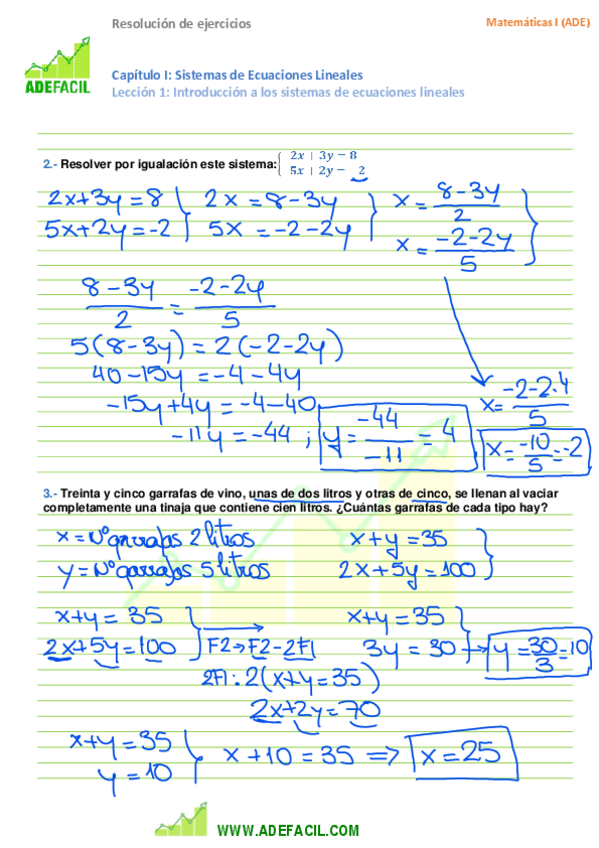 Resolución de ejercicios
Matemáticas I (ADE)
ADEFACIL
Capítulo I: Sistemas de Ecuaciones Lineales
Lección 1: Introducción a los sistemas de ecuaciones lineales
2.- Resolver por igualación este sistema: { 2x + 3y = 8
5x + 2y = -2
2x+3y=8 } 2x = 8-3y } x = (8-3y)/2 }
5x+2y=-2 } 5x = -2-2y } x = (-2-2y)/5 }
(8-3y)/2 = (-2-2y)/5
5(8-3y) = 2(-2-2y)
40-15y = -4-4y
-15y+4y = -4-40
x = (-2-2·4)/5
-11y = -44 ; y = -44/-11 = 4
x = -10/5 = -2
3.- Treinta y cinco garrafas de vino, unas de dos litros y otras de cinco, se llenan al vaciar
completamente una tinaja que contiene cien litros. ¿Cuántas garrafas de cada tipo hay?
x = Nº garrafas 2 litros x+y = 35
y = Nº garrafas 5 litros 2x+5y = 100 }
x+y = 35 x+y = 35
2x+5y = 100 } F2→F2-2F1 3y = 30 } → y = 30/3 = 10
2F1: 2(x+y=35)
2x+2y=70
x+y=35
y=10 } x+10=35 ⇒ x=25
WWW.ADEFACIL.COM